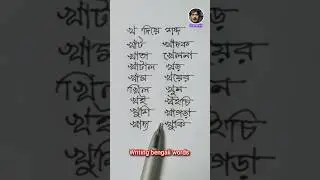 খ দিয়ে শব্দ
খাট খাদক
খাতা খেলনা
খাটাল খড়
খাম খয়ের
খিল খুশ
খই খইচি
খুশি খাগড়া
খাদ্য খুকি
Writing bengali words